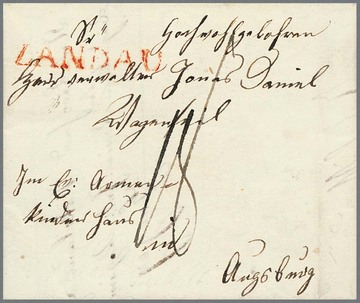 Sr Hochwohlgebohren
LANDAU
Hausverwalter Jonas Daniel
Wagenseil
Im Ev: Armen
Kinder Haus
in
Augsburg